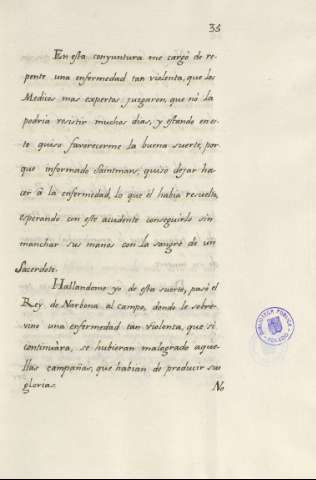 35
En esta conyuntura me cargò de re-
pente una enfermedad tan violenta, que los
Medicos mas expertos juzgaron, que nò la
podria resistir muchos dias, y estando en es-
to quiso favorecerme la buena suerte, por
que informado Saintmars, quisò dejar ha-
cer â la enfermedad, lo que èl habia resuelto,
esperando con este accidente conseguirlo sin
manchar sus manos con la sangre de un
Sacerdote.
Hallandome yo de esta suerte, pasò el
Rey de Narbona al campo, donde le sobre-
vino una enfermedad tan violenta, que si
continuàra, se hubieran malogrado aque-
llas campañas, que habian de producir sus
glorias.
No
BIBLIOTECA PUBLICA
TOLEDO